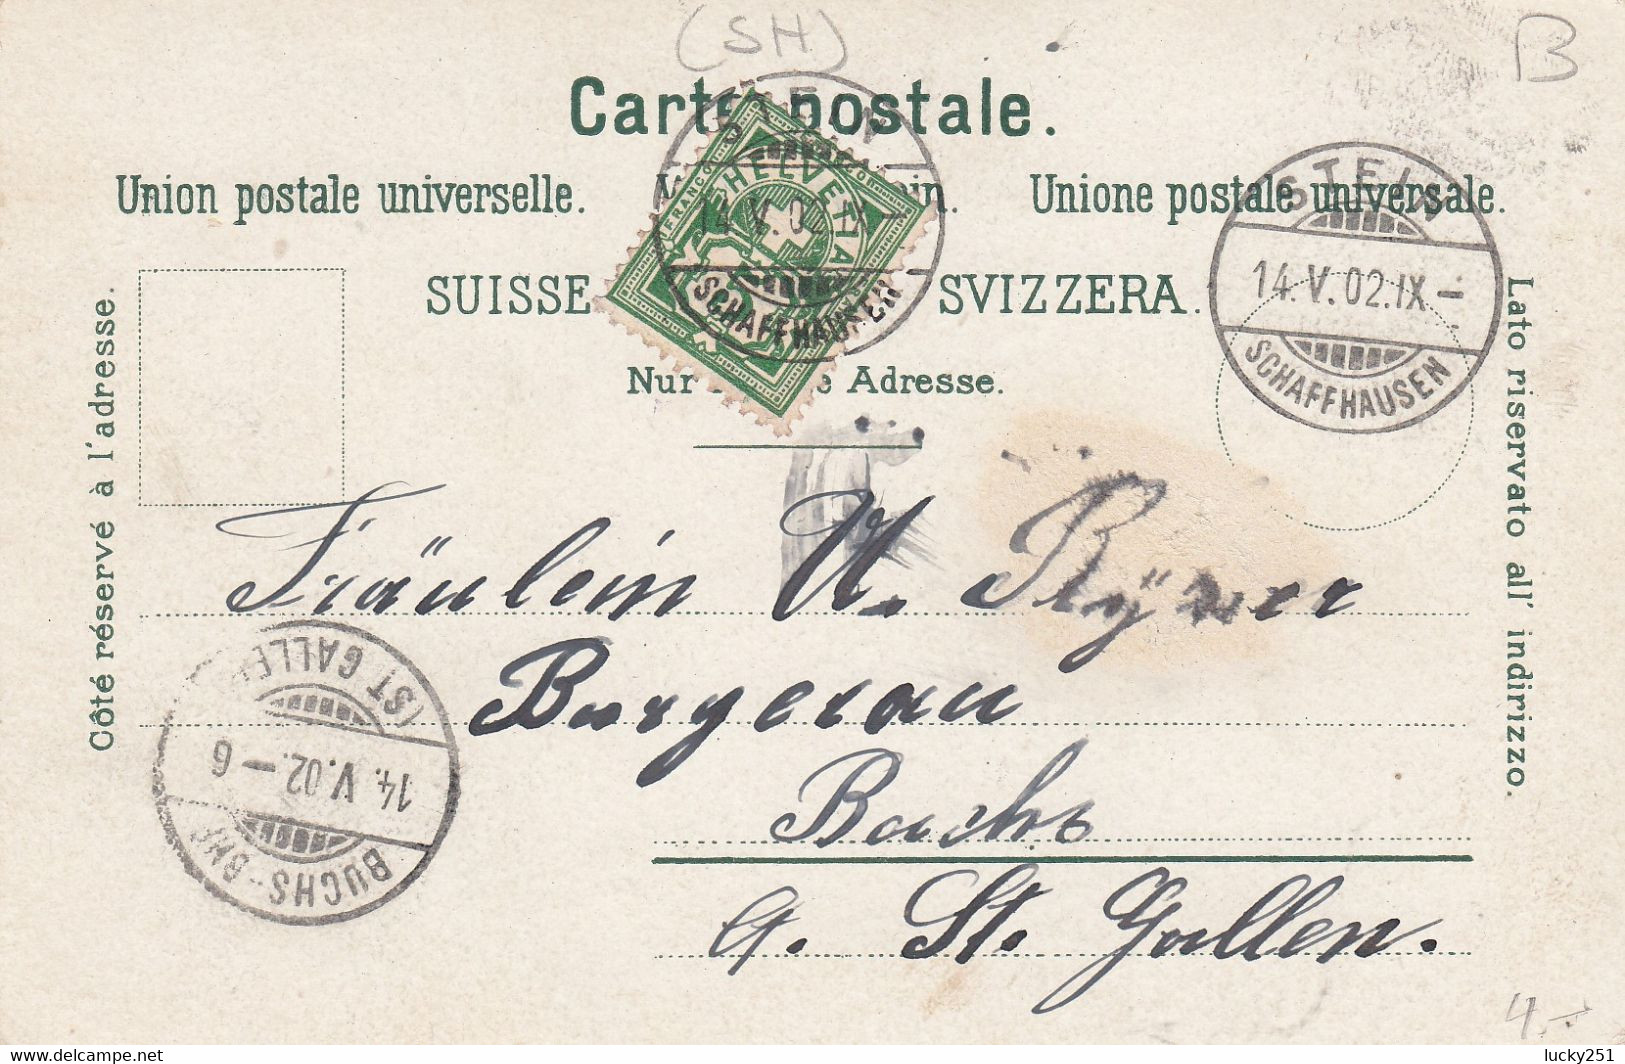 (SH)
B
Carte postale.
Union postale universelle.
Unione postale universale.
SUISSE
SVIZZERA.
Nur
Adresse.
FRANCO
HELVETIA
STEIN
14.V.02.IX-
SCHAFFHAUSEN
STEIN
14.V.02.IX-
(SCHAFFHAUSEN
Côté réservé à l'adresse.
Lato riservato all' indirizzo.
Fräulein U.
Burgerau
Buchs
Ct. St. Gallen.
BUCHS-BHF
14.V.02.-6
(ST GALLEN
4.-
delcampe.net
lucky251